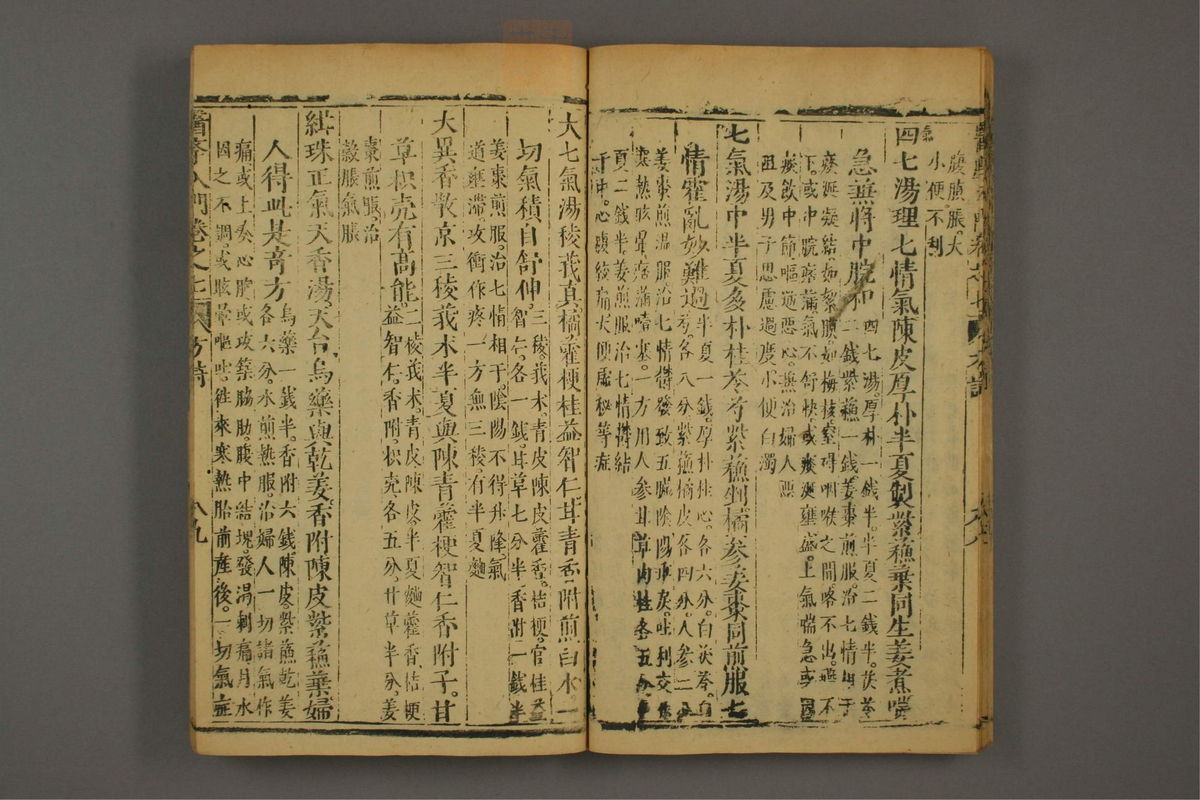 腹脹大
小便不利
四七湯理七情氣陳皮厚朴半夏制紫蘓棗同生姜煮嗜
急兼將中脘和
四七湯厚朴一錢半半夏二錢半茯苓
二錢紫蘓一錢姜棗煎服治七情
痰涎凝結如絮膜如梅核窒碍咽喉之間咯不出嚥不
下或中脘痞滿氣不舒快或痰涎壅盛上氣喘急或因
痰飲中節嘔逆惡心兼治婦人惡
阻及男子思慮過度小便白濁
七氣湯中半夏多朴桂苓芍紫蘓橘參姜棗同煎服七
情霍亂妙難過
半夏一錢厚朴桂心各六分白茯苓白
芍各八分紫蘓橘皮各四分人參二分
姜棗煎温服治七情欝發致五臟陰陽吐利交作
寒熱眩暈痞滿噎塞一方用人參甘草肉桂各五分半
夏二錢半姜煎服治七情欝結
于中心腹絞痛大便虛秘等症
大七氣湯稜莪真橘藿梗桂益智仁甘青香附煎白水一
切氣積自舒伸
三稜莪术青皮陳皮藿香桔梗官桂益
智仁各一錢甘草七分半香附一錢半
姜棗煎服治七情相干陰陽不得升降氣
道壅滯攻衝作疼一方無三稜有半夏麯
大異香散京三稜莪术半夏與陳青藿梗智仁香附子甘
草枳壳有高能
二稜莪术青皮陳皮半夏麯藿香桔梗
益智仁香附枳壳各五分甘草半分姜
棗煎服治
穀脹氣脹
紺珠正氣天香湯天台烏藥與乾姜香附陳皮紫蘓葉婦
人得此是奇方
烏藥一錢半香附六錢陳皮紫蘓乾姜
各六分水煎熱服治婦人一切諸氣作
痛或上奏心胷或攻築脇肋腹中結塊發渴刺痛月水
因之不調或眩暈嘔吐徃來寒熱胎前産後一切氣症
醫學入門卷之七 方詩 八九